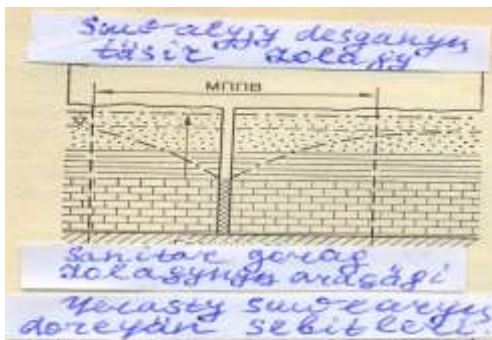 Suw-alyjy desganyň
täsir zolagy
МППВ
Sanitar gorag
zolagynyň aragägi
Yerasty suwlaryň
döreýän sebitleri.